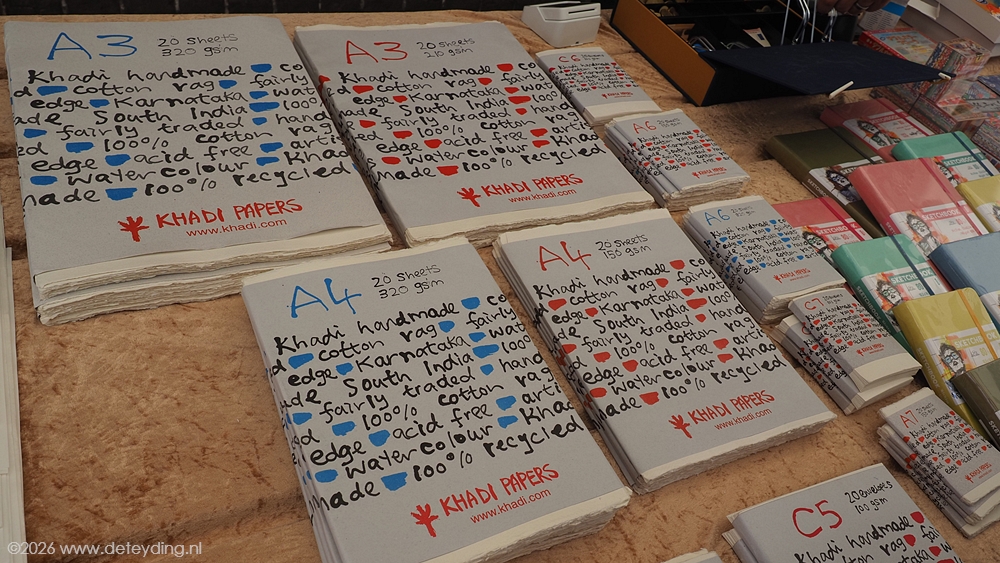 A3
20 sheets
320 gsm
Khadi handmade co
d cotton rag fairly
edge Karnataka wat
ade South India 100%
fairly traded hand
d 100% cotton rag
edge acid free arti
water colour Khad
made 100% recycled
KHADI PAPERS
www.khadi.com
A3
20 sheets
210 gsm
Khadi handmade co
d cotton rag fairly
edge Karnataka wat
de South India 100%
fairly traded hand
d 100% cotton rag
edge acid free arti
water colour Khad
made 100% recycled
KHADI PAPERS
www.khadi.com
C6
KHADI PAPERS
A6
KHADI PAPERS
A6
KHADI PAPERS
A4
20 sheets
320 gsm
Khadi handmade co
d cotton rag fairly
edge Karnataka wat
de South India 100%
fairly traded hand
d 100% cotton rag
edge acid free arti
water colour Khad
made 100% recycled
KHADI PAPERS
www.khadi.com
A4
20 sheets
150 gsm
Khadi handmade co
d cotton rag fairly
edge Karnataka wat
de South India 100%
fairly traded hand
d 100% cotton rag
edge acid free arti
water colour Khad
made 100% recycled
KHADI PAPERS
www.khadi.com
C7
A7
C5
20 envelopes
100 gsm
Khadi handmade
cotton rag
SKETCHBOOK
SKETCHBOOK
©2026 www.deteyding.nl